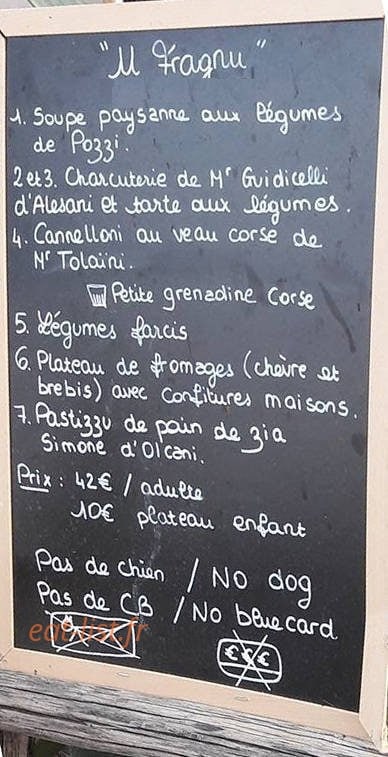 "U Fragnu"
1. Soupe paysanne aux légumes
de Pozzi.
2 et 3. Charcuterie de Mr Guidicelli
d'Alesani et tarte aux légumes.
4. Cannelloni au veau corse de
Mr Tolaïni.
Petite grenadine Corse
5. Légumes farcis
6. Plateau de fromages (chèvre et
brebis) avec confitures maisons.
7. Pastizzu de pain de zia
Simone d'Olcani.
Prix : 42€ / adulte
10€ plateau enfant
Pas de chien / No dog
Pas de CB / No blue card
eat-list.fr
€€€